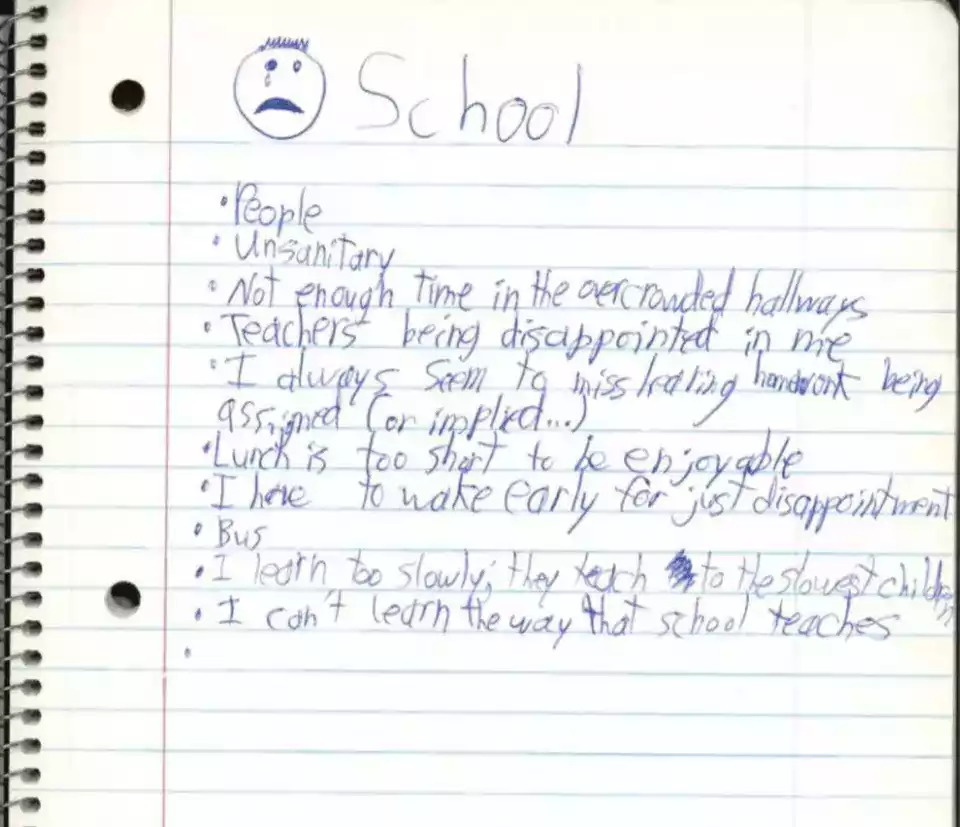 School
• People
• Unsanitary
• Not enough time in the overcrowded hallways
• Teachers being disappointed in me
• I always seem to miss hearing homework being
assigned (or implied...)
• Lunch is too short to be enjoyable
• I have to wake early for just disappointment
• Bus
• I learn too slowly; they teach to the slowest children
• I can't learn the way that school teaches
•